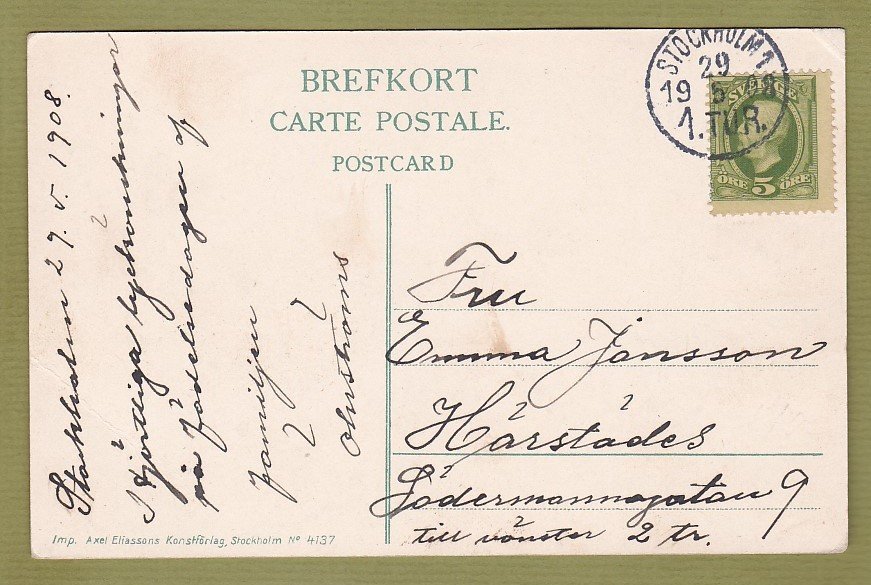 BREFKORT
CARTE POSTALE.
POSTCARD
STOCKHOLM 1
29
19 5 08
1.TUR.
SVERIGE
ÖRE 5 ÖRE
Stockholm 29.V.1908.
Hjärtliga lyckönskningar
på födelsedagen af
familjen
Ohrströms
Fru
Emma Jonsson
Härstädes
Södermannagatan 9
till vänster 2 tr.
Imp. Axel Eliassons Konstförlag, Stockholm No 4137